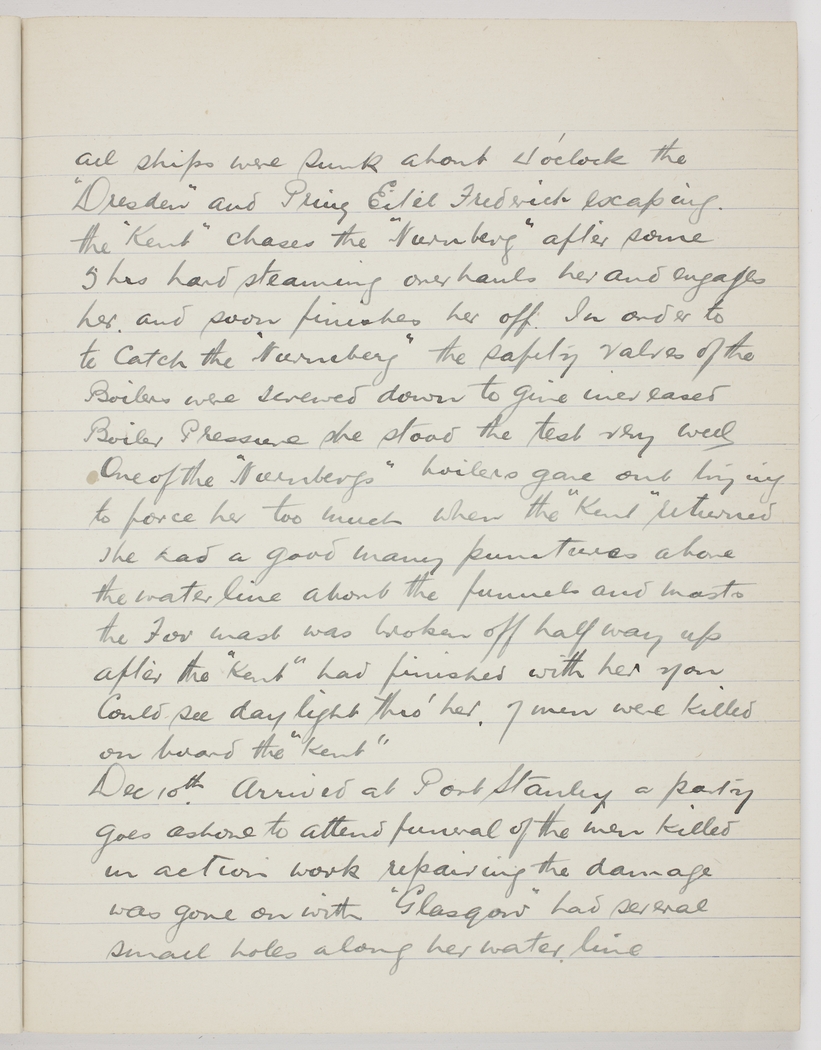 all ships were sunk about 4 o'clock the
"Dresden" and Pring Eitel Frederick escaping.
the "Kent" chases the "Nurnberg" after some
5 hrs hard steaming overhauls her and engages
her. and soon finishes her off. In order to
to Catch the "Nurnberg" the safety valves of the
Boilers were screwed down to give increased
Boiler Pressure she stood the test very well
One of the "Nurnbergs" boilers gave out trying
to force her too much when the "Kent" returned
she had a good many punctures above
the water line about the funnels and masts
the For mast was broken off half way up
after the "Kent" had finished with her you
Could see day light thro' her. 7 men were killed
on board the "Kent"
Dec 10th. Arrived at Port Stanley a party
goes ashore to attend funeral of the men killed
in action work repairing the damage
was gone on with "Glasgow" had several
small holes along her water line